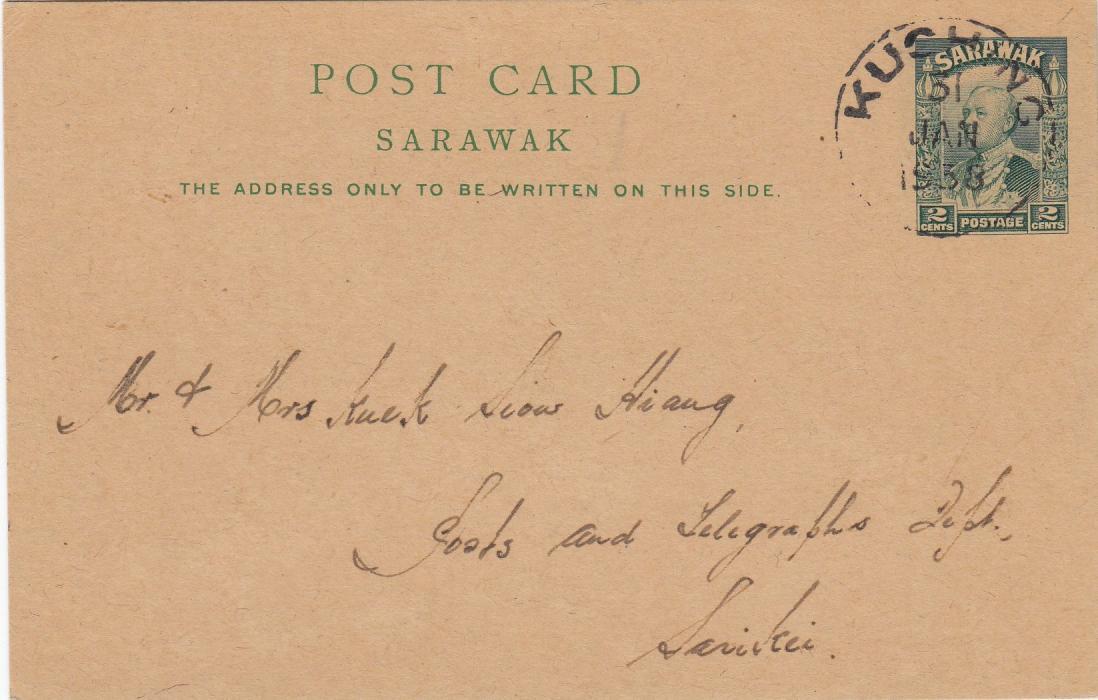 POST CARD
SARAWAK
THE ADDRESS ONLY TO BE WRITTEN ON THIS SIDE.
KUCHING
31
JAN
1938
SARAWAK
2 CENTS POSTAGE 2 CENTS
Mr. & Mrs Kuek Siow Hiang,
Posts and Telegraphs Dept.,
Sarikei.